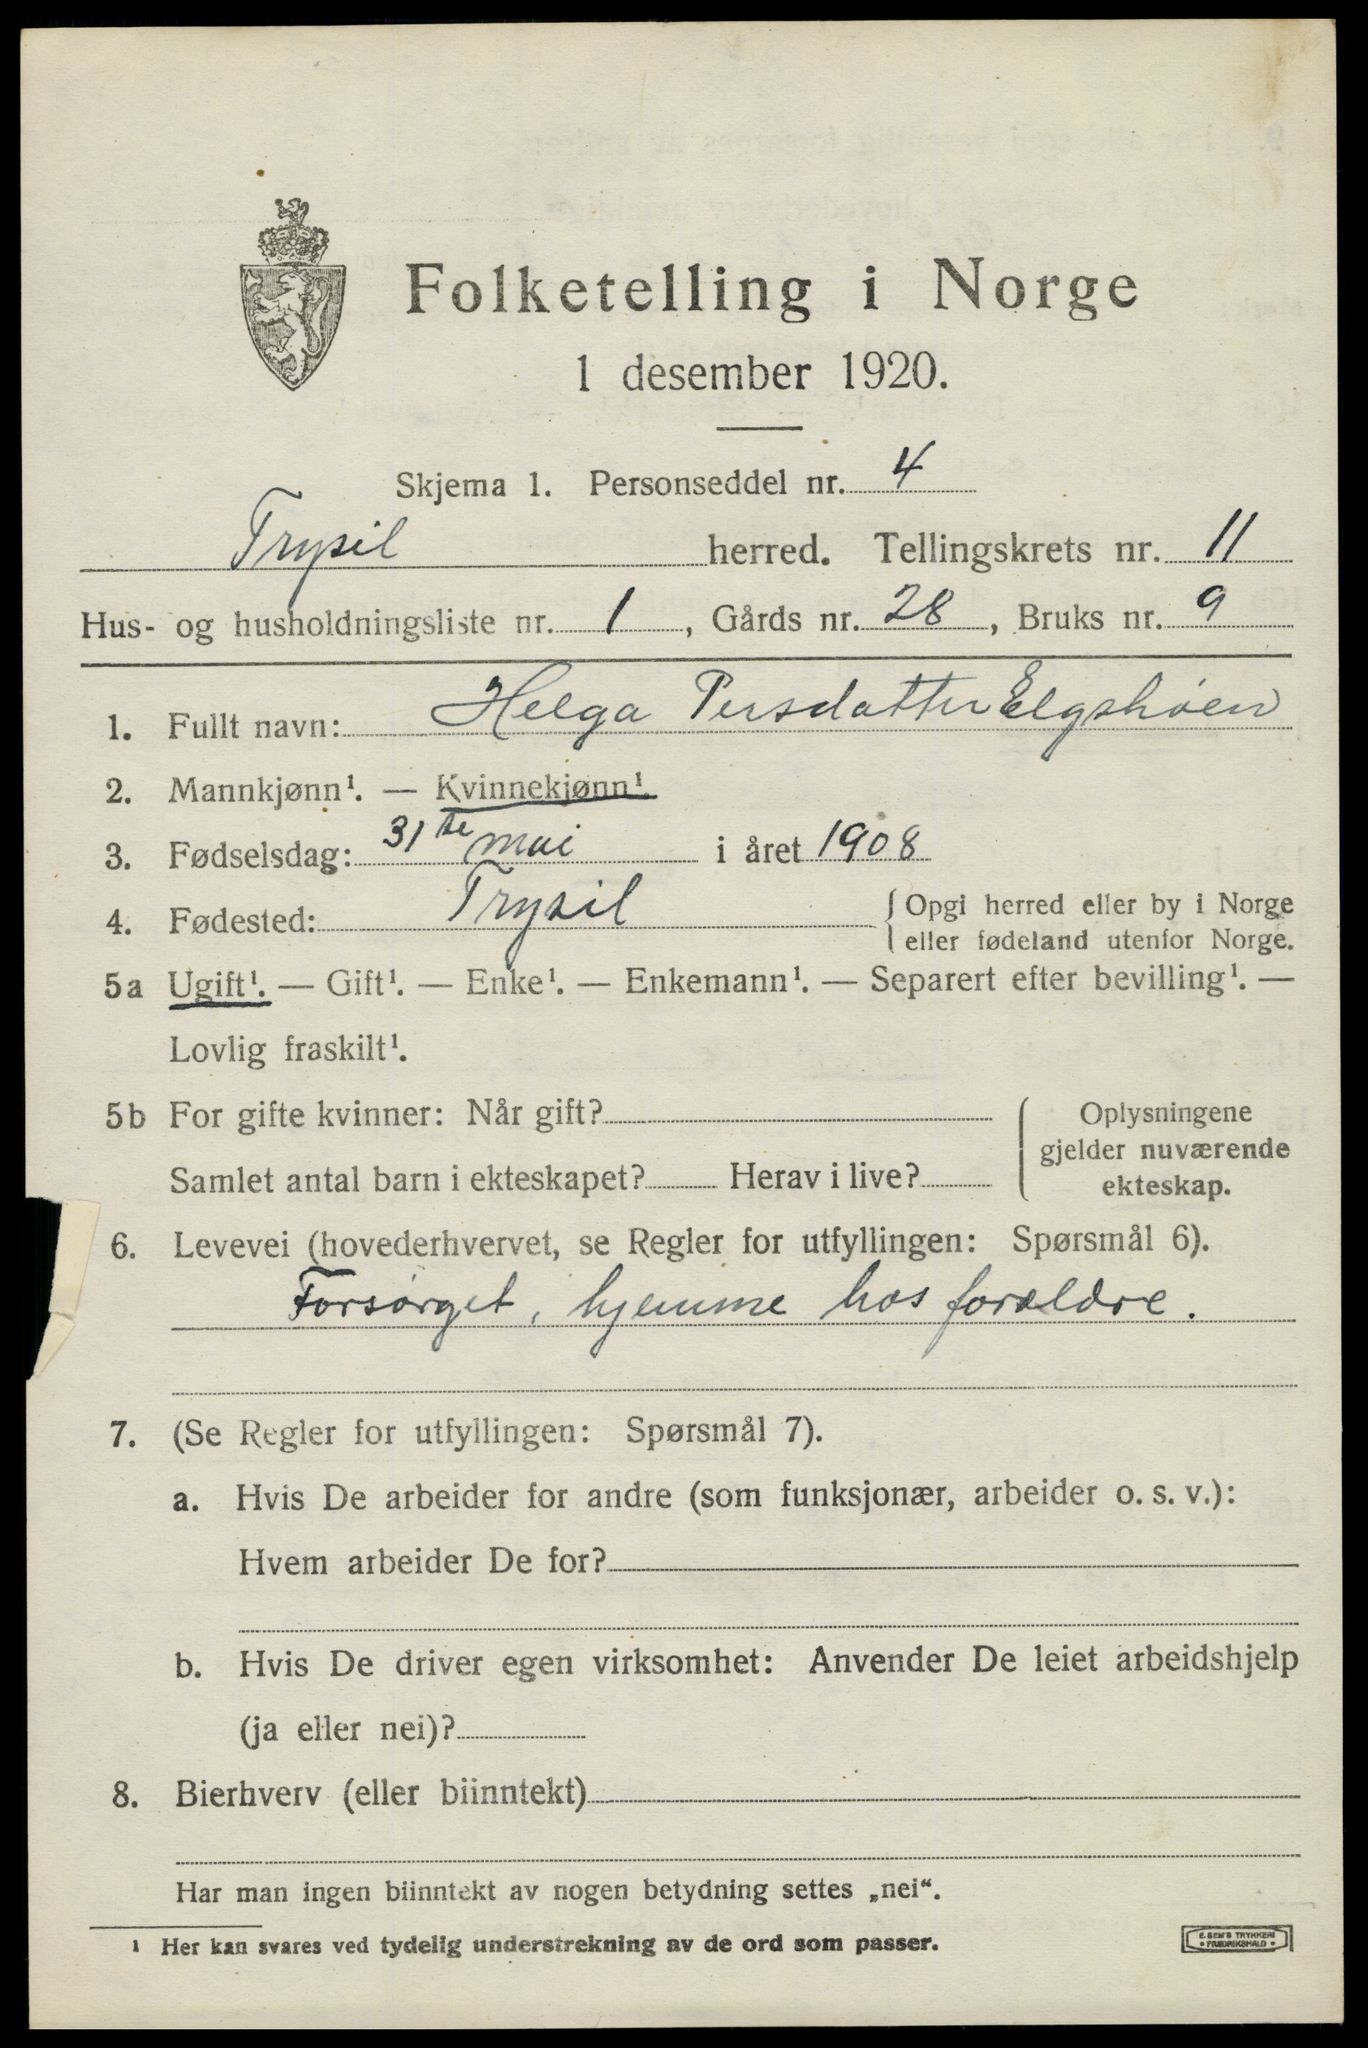 Folketelling i Norge
1 desember 1920.
Skjema 1. Personseddel nr. 4
Trysil herred. Tellingskrets nr. 11
Hus- og husholdningsliste nr. 1, Gårds nr. 28, Bruks nr. 9
1. Fullt navn: Helga Persdatter Elgshøen
2. Mannkjønn¹. — Kvinnekjønn¹.
3. Fødselsdag: 31te mai i året 1908
4. Fødested: Trysil { Opgi herred eller by i Norge
eller fødeland utenfor Norge.
5a Ugift¹. — Gift¹. — Enke¹. — Enkemann¹. — Separert efter bevilling¹. —
Lovlig fraskilt¹.
5b For gifte kvinner: Når gift? Oplysningene
gjelder nuværende
Samlet antal barn i ekteskapet? Herav i live? ekteskap.
6. Levevei (hovederhvervet, se Regler for utfyllingen: Spørsmål 6).
Forsørget, hjemme hos forældre.
7. (Se Regler for utfyllingen: Spørsmål 7).
a. Hvis De arbeider for andre (som funksjonær, arbeider o. s. v.):
Hvem arbeider De for?
b. Hvis De driver egen virksomhet: Anvender De leiet arbeidshjelp
(ja eller nei)?
8. Bierhverv (eller biinntekt)
Har man ingen biinntekt av nogen betydning settes „nei“.
¹ Her kan svares ved tydelig understrekning av de ord som passer.
E. SEM'S TRYKKERI
• FREDRIKSHALD •